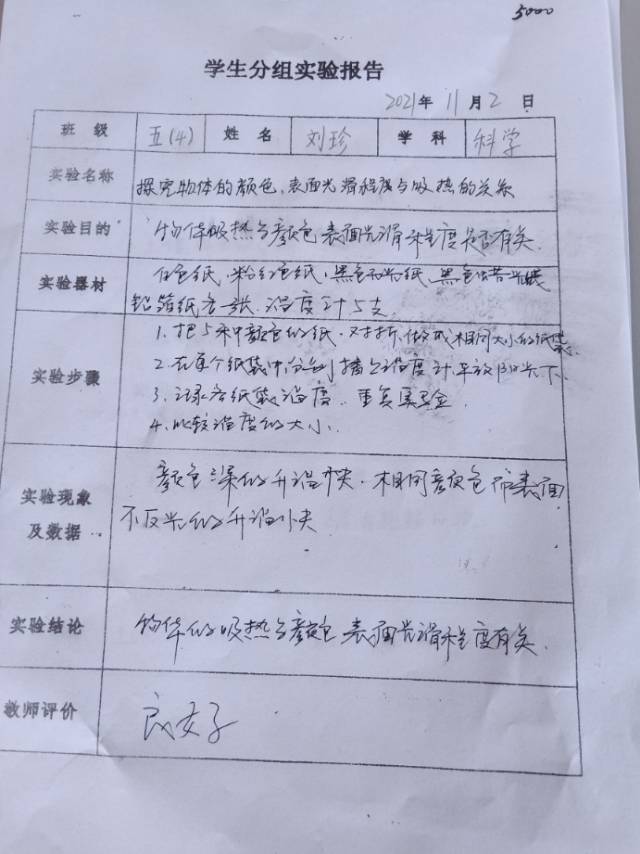 5000
学生分组实验报告
2021年 11月 2 日
班 级 五(4) 姓 名 刘珍 学 科 科学
实验名称 探究物体的颜色、表面光滑程度与吸热的关系
实验目的 物体吸热与颜色、表面光滑程度是否有关.
实验器材 白色纸,粉红色纸,黑色
铝箔纸各一张.温度计5支
实验步骤 1.把5种颜色的纸.对折,做成相同大小的纸袋.
2.在每个纸袋中分别插上温度计,平放阳光下
3.记录各纸袋温度.重复实验
4.比较温度的大小.
实验现象及数据 颜色深的升温快.相同颜色而表面
不反光的升温快
实验结论 物体的吸热与颜色、表面光滑程度有关.
教师评价 良好